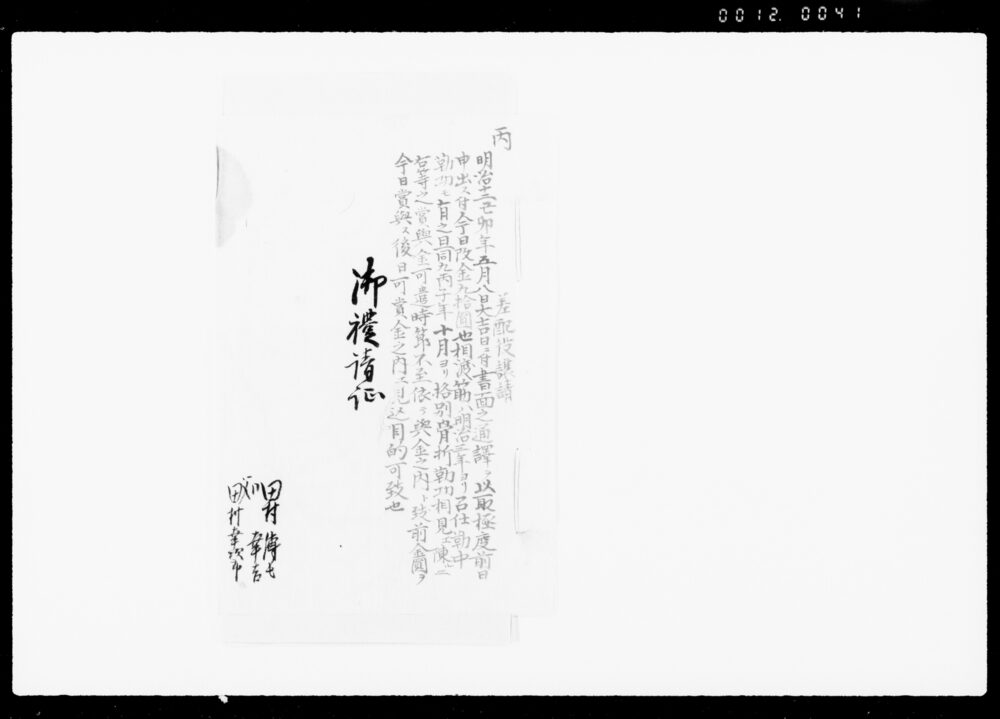 0012. 0041
丙
差配役譲請
明治十二己卯年五月八日大吉日ニ付書面之通譯ヲ以取極度前日
申出ニ付今日改金九拾圓也相渡筋ハ明治三年ヨリ召仕勤中
勤功モ有之且同九丙子年十月ヨリ格別骨折勤功相見エ陳ニ
右等之賞與金可遣時節不至依テ與金之内ト致前金圓ヲ
今日賞與ス後日可賞金之内ニ見込目的可致也
御禮請証
田村
田村幸次郎